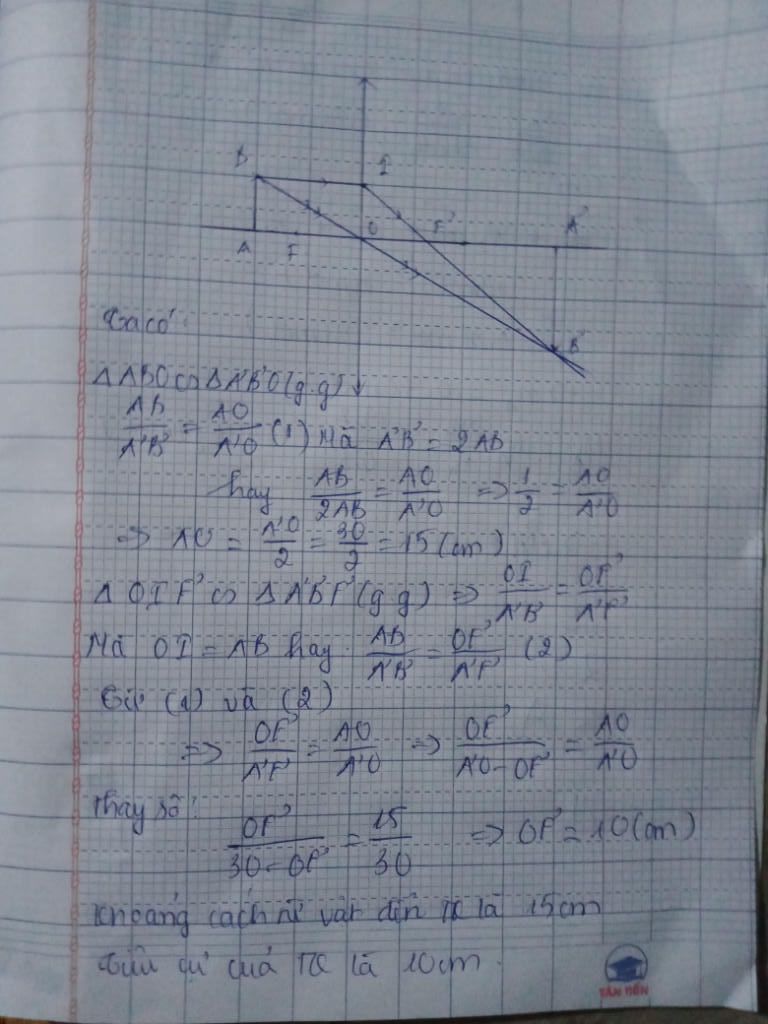 B I
A F O F' A'
B'
Ta có:
ΔABO ∽ ΔA'B'O (g.g)
AB/A'B' = AO/A'O (1) Mà A'B' = 2AB
hay AB/2AB = AO/A'O => 1/2 = AO/A'O
=> AO = A'O/2 = 30/2 = 15 (cm)
ΔOIF' ∽ ΔA'B'F' (g g) => OI/A'B' = OF'/A'F'
Mà OI = AB hay AB/A'B' = OF'/A'F' (2)
Từ (1) và (2)
=> OF'/A'F' = AO/A'O => OF'/A'O - OF' = AO/A'O
Thay số:
OF'/30 - OF' = 15/30 => OF' = 10 (cm)
Khoảng cách từ vật đến TK là 15cm
Tiêu cự của TK là 10cm.
TÂN TIẾN